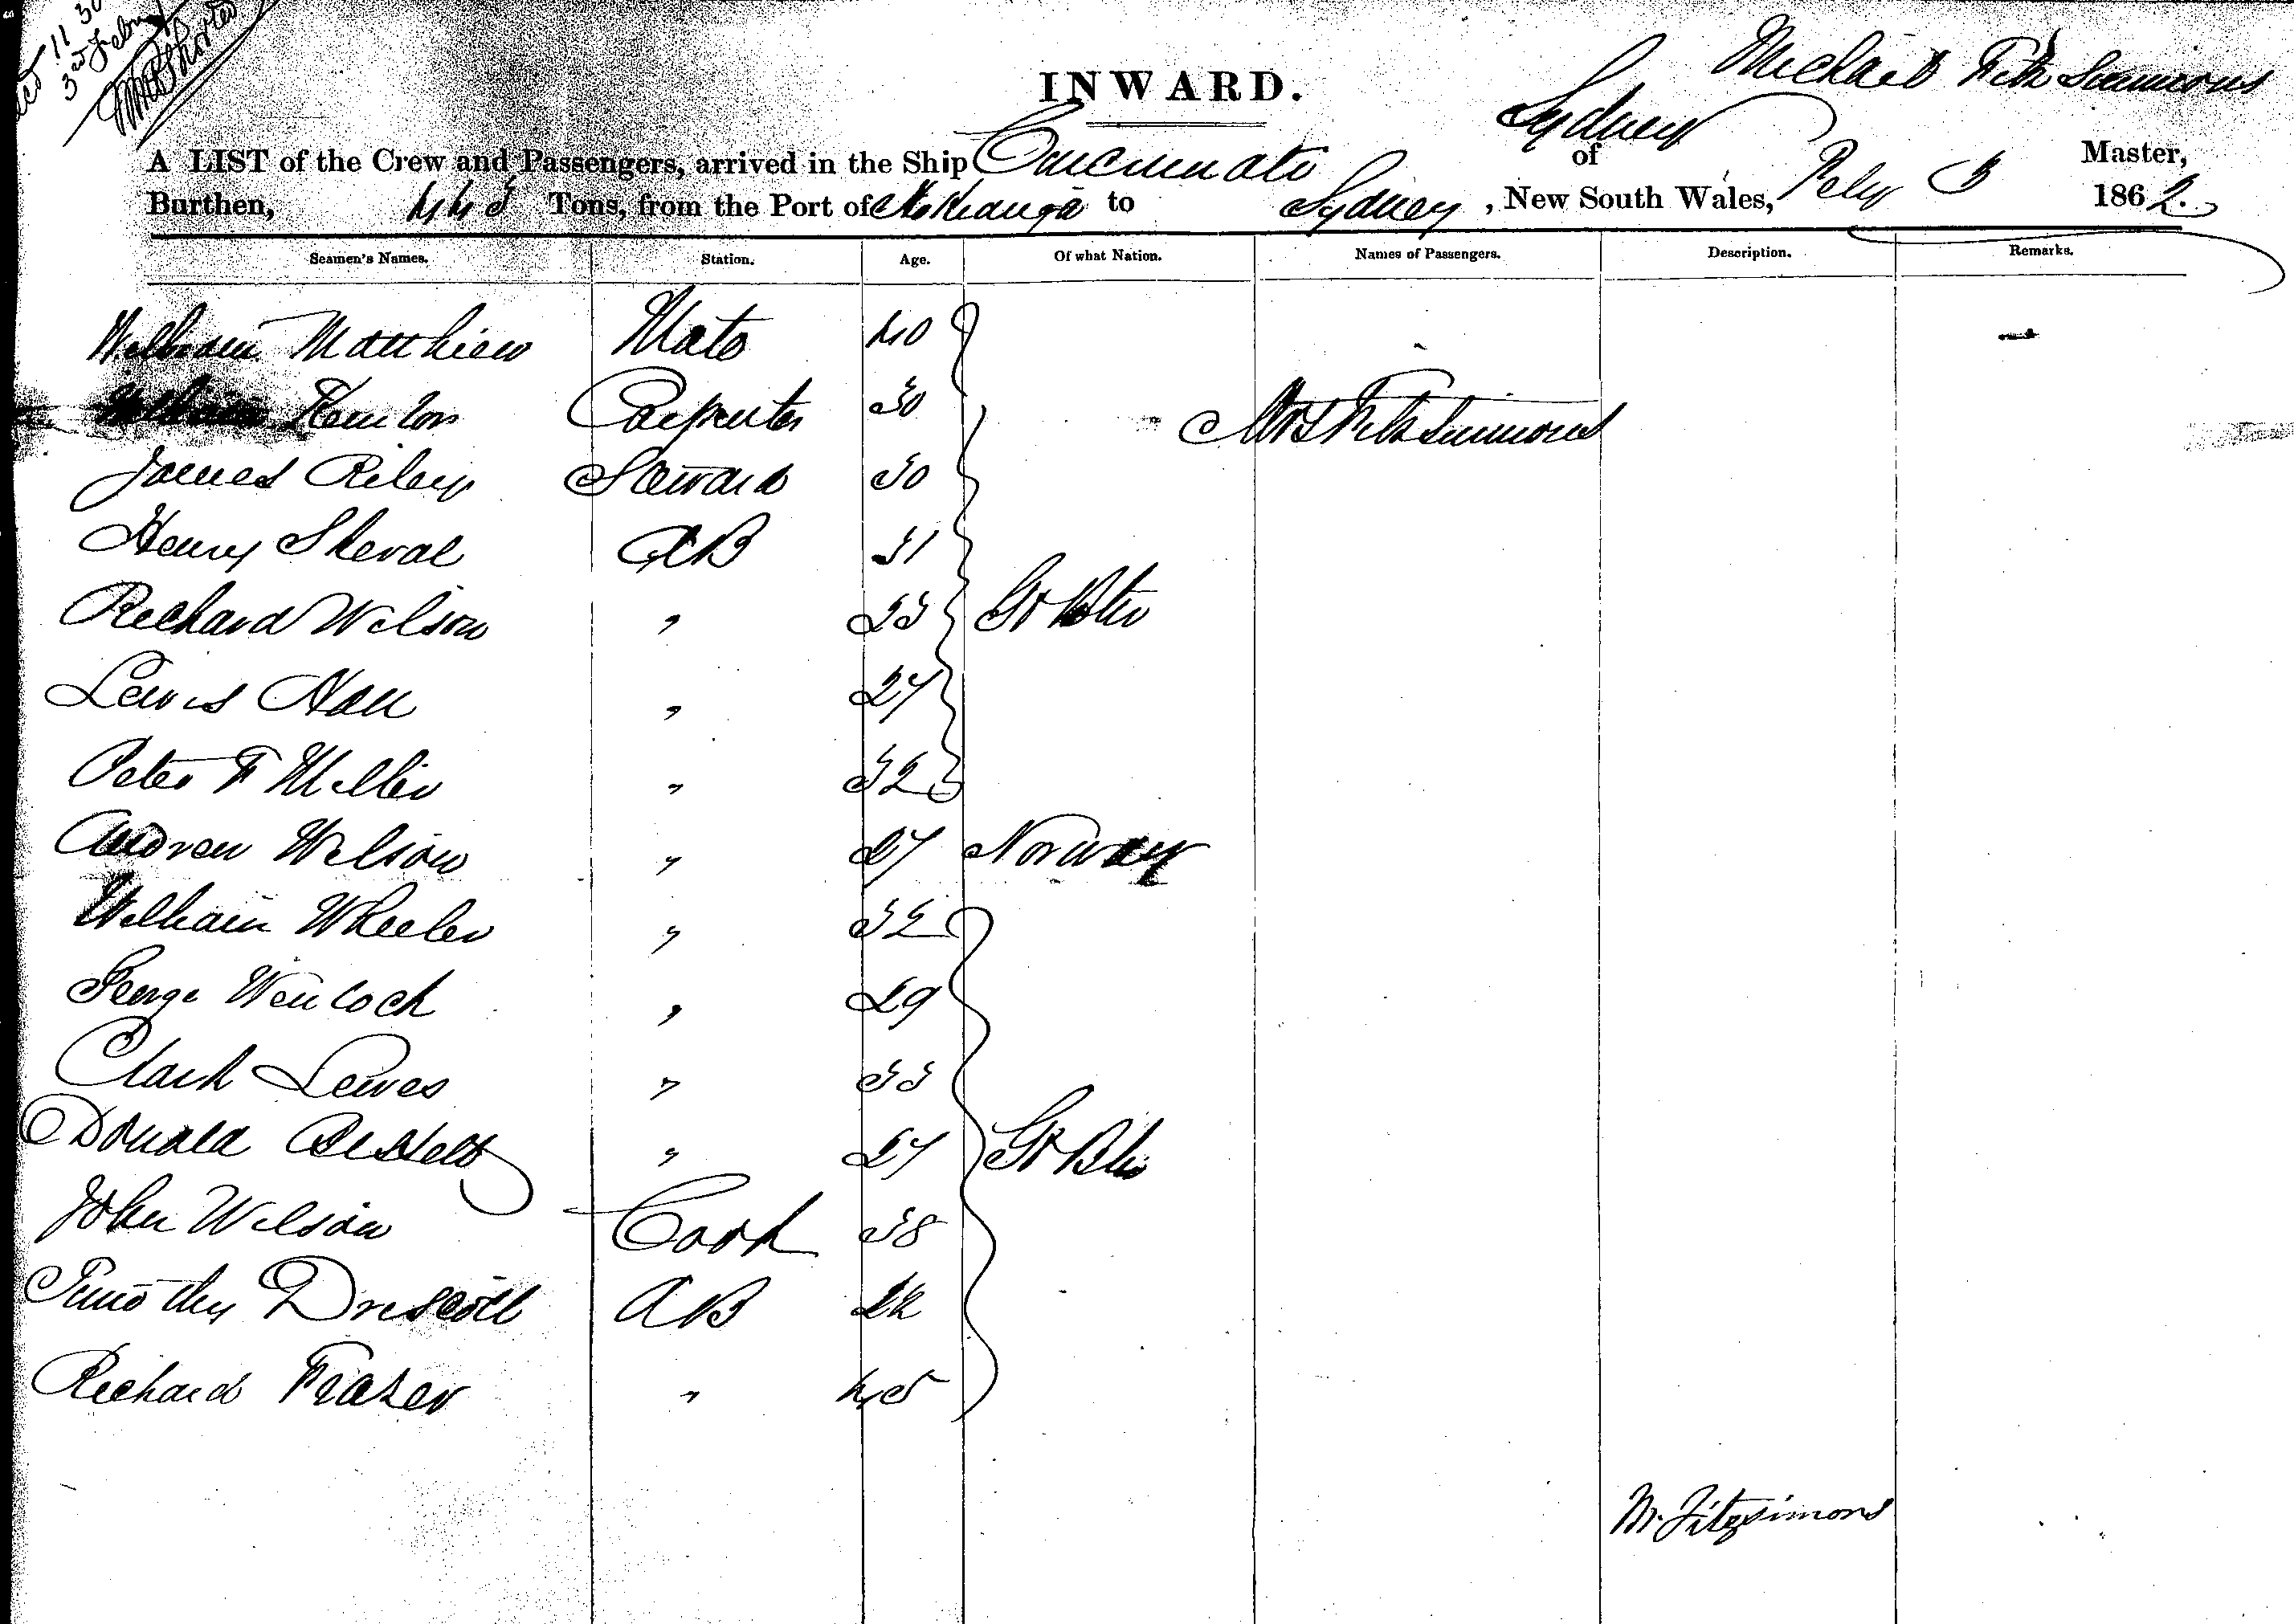 11 30
3rd Febru
INWARD.
Michael Fitz Simmons
A LIST of the Crew and Passengers, arrived in the Ship Cincinnati of Sydney Master,
Burthen, 443 Tons, from the Port of Hokianga to Sydney, New South Wales, Feby 3 1862.
Seamen's Names. Station. Age. Of what Nation. Names of Passengers. Description. Remarks.
William Matthiew Mate 40
William Carpenter 30 Mrs Fitz Simmons
James Riley Steward 30
Henry Sheval AB 31
Richard Wilson " 23 Gt Btn
Lewis Hall " 27
Peter F Miller " 32
Andrew Wilson " 27 Norway
William Wheeler " 32
George Wencock " 29
Clark Lewes " 33
Donald " 27 Gt Btn
John Wilson Cook 38
Timothy Driscoll AB 24
Richard Frazer " 45
M. Fitzsimons